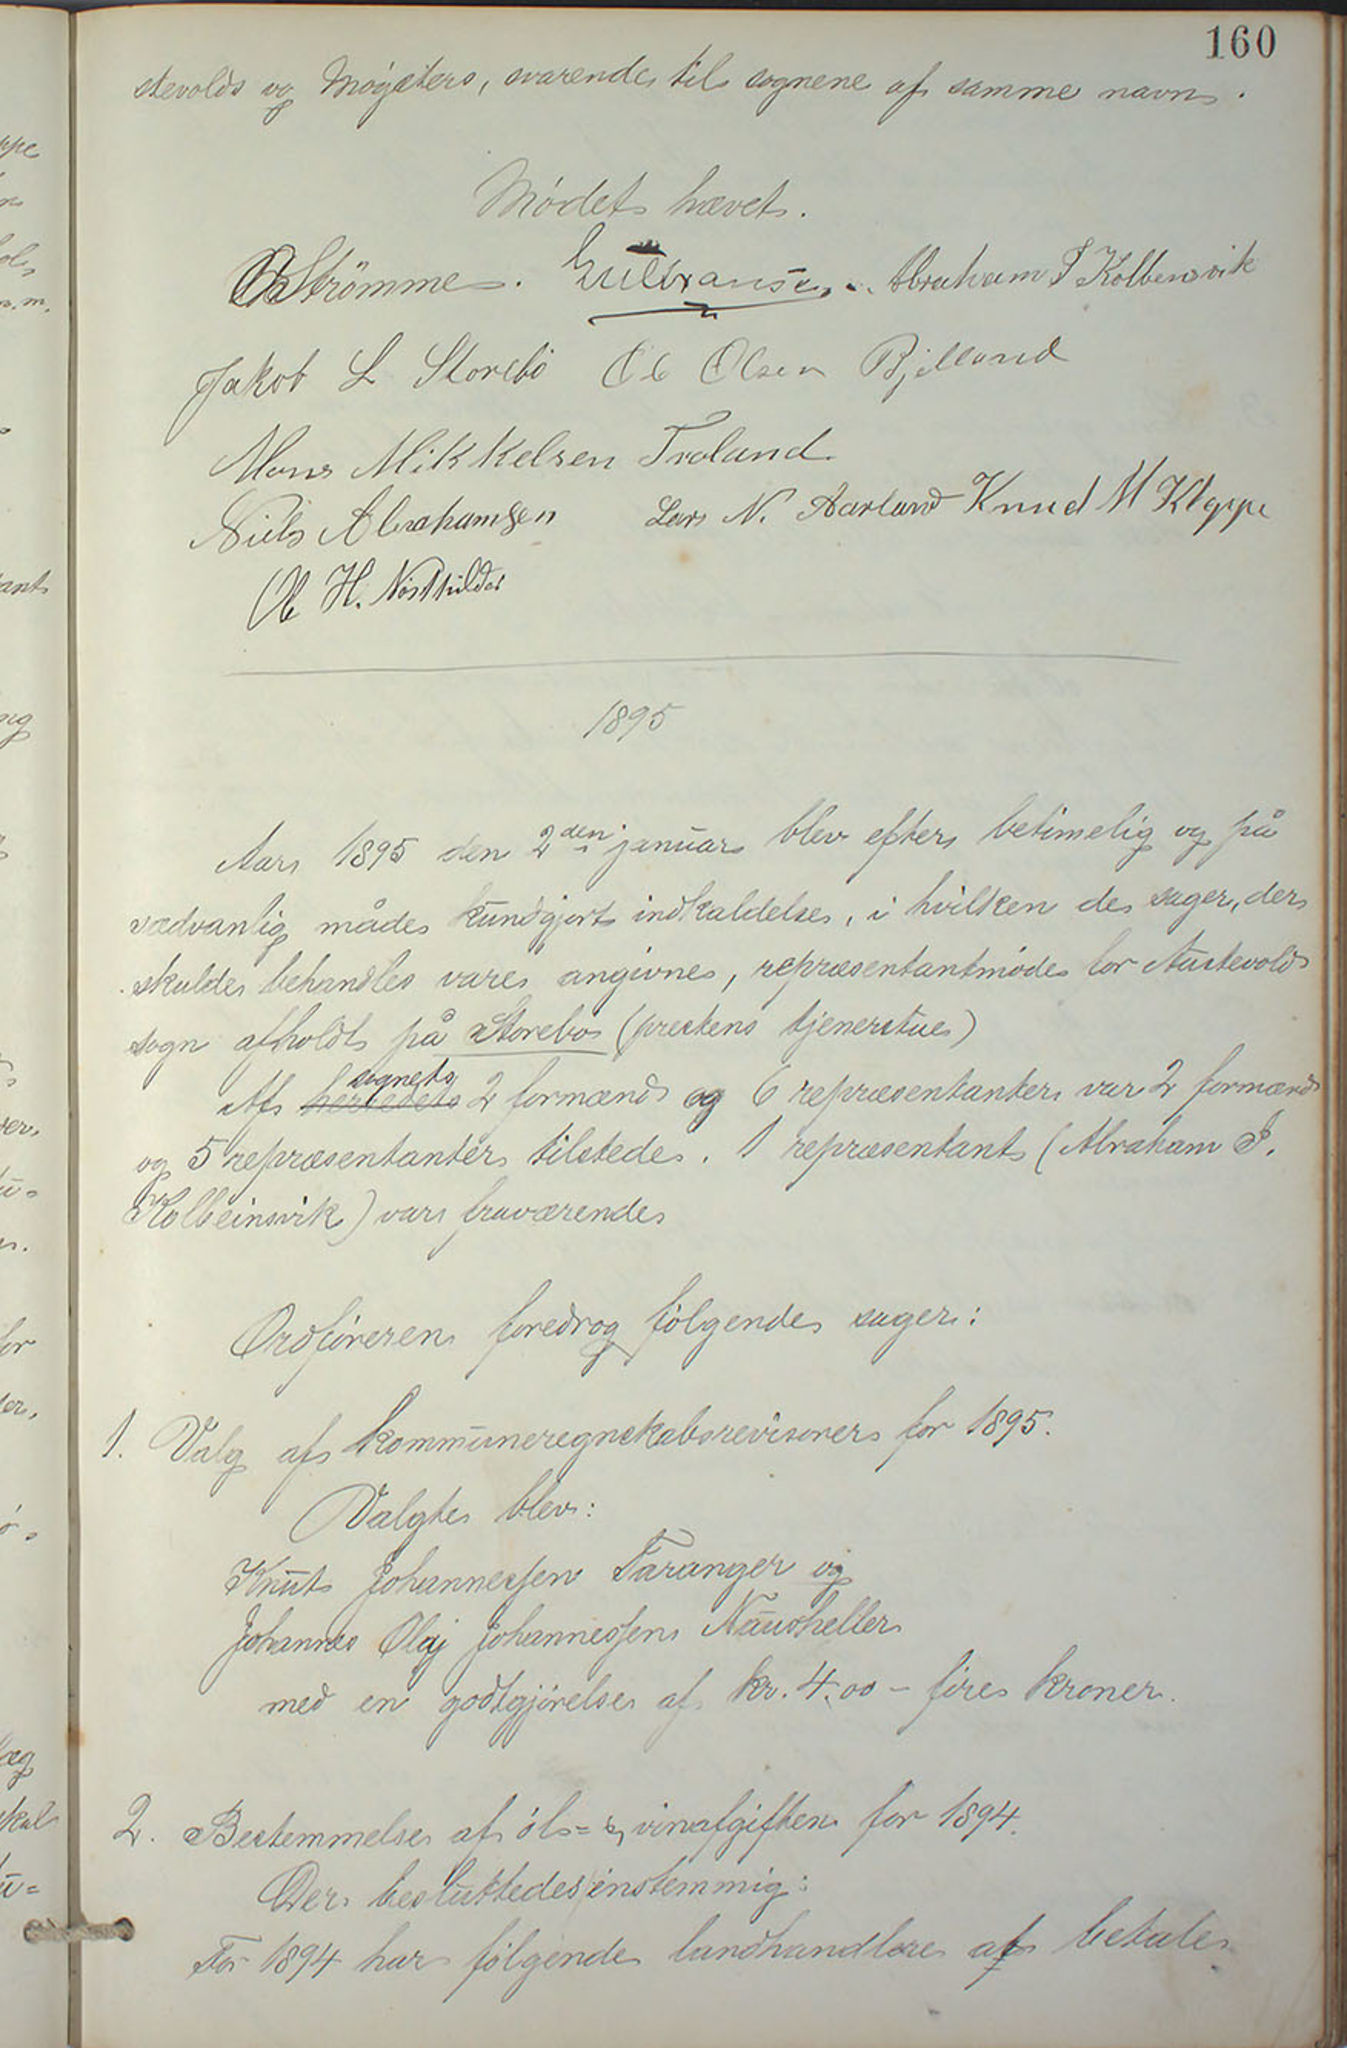 160
stevolds og Møgsters, svarende til sognene af samme navn.
Mødet hævet.
O Strömme. Gulbransen. Abraham I Kolbensvik
Jakob L Storebö Ole Olsen Bjelland
Mons Mikkelsen Troland
Niels Abrahamsen Lars N. Aarland Knud M Kleppe
Ole H. Nösthildes
1895
Aar 1895 den 2den januar blev efter betimelig og på
sædvanlig måde kundgjort indkaldelse, i hvilken de sager, der
skulde behandles vare angivne, repræsentantmøde for Austevold
sogn afholdt på Storebø (prestens tjenerstue)
Af herredets sognets 2 formænd og 6 repræsentanter var 2 formænd
og 5 repræsentanter tilstede. 1 repræsentant (Abraham I.
Kolbeinsvik) var fraværende
Ordføreren foredrog følgende sager:
1. Valg af kommuneregnskabsrevisorer for 1895.
Valgte blev:
Knut Johannessen Taranger og
Johannes Olaj Johannessen Naustheller
med en godtgjørelse af kr. 4.00 - fire kroner.
2. Bestemmelse af øl- & vinafgiften for 1894.
Der besluttedes enstemmig:
For 1894 har følgende landhandlere at betale